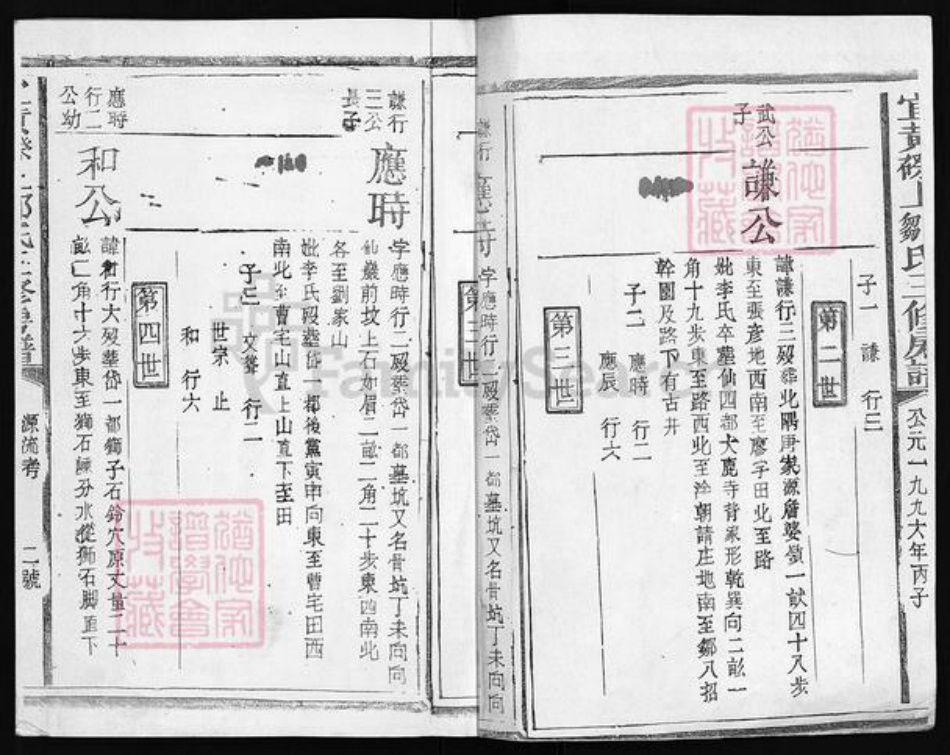 宜黃磜上鄒氏三修房譜
公元一九九六年丙子
子一 謙 行三
第二世
武公子
謙公
諱謙行三歿葬北隅唐家源詹婆嶺一畝四十八步
東至張彥地西南至廖宇田北至路
妣李氏卒葬仙四都犬鹿寺背象形乾巽向二畝一
角十九步東至路西北至淦朝請庄地南至鄒八招
幹園及路下有古井
子二 應時 行二
應辰 行六
第三世
謙行三公長子
應時
字應時行二歿葬岱一都墓坑又名骨坑丁未向向
仙巖前坟上石如眉二畝二角二十步東西南北
各至劉家山
妣李氏歿葬岱一都後黨寅申向東至曹宅田西
南北至曹宅山直上山直下至田
子三 文峯 行二
世宗 止
和 行六
第四世
應時行二公幼
和公
諱和行大歿葬岱一都獅子石鈴穴原丈量二十
畝二角十六步東至獅石陳分水從獅石脚直下
源流考
二號
FamilySearch